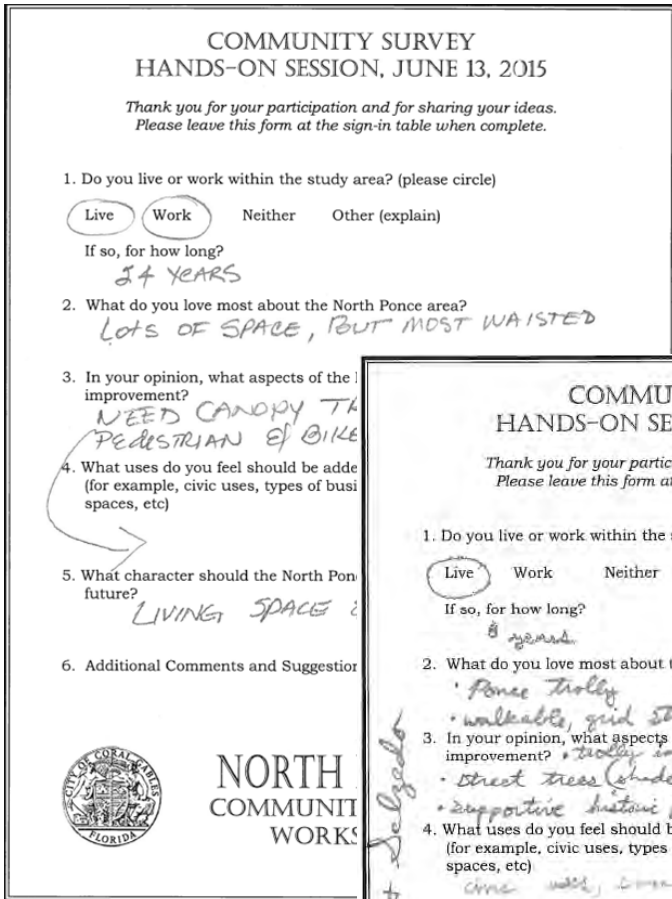 COMMUNITY SURVEY
HANDS-ON SESSION, JUNE 13, 2015
Thank you for your participation and for sharing your ideas.
Please leave this form at the sign-in table when complete.
1. Do you live or work within the study area? (please circle)
Live Work Neither Other (explain)
If so, for how long?
24 YEARS
2. What do you love most about the North Ponce area?
LOTS OF SPACE, BUT MOST WAISTED
3. In your opinion, what aspects of the
improvement?
NEED CANOPY
PEDESTRIAN & BIKE
4. What uses do you feel should be adde
(for example, civic uses, types of busi
spaces, etc)
5. What character should the North Pon
future?
LIVING SPACE
6. Additional Comments and Suggestion
CITY OF CORAL GABLES
FLORIDA
NORTH
COMMUNIT
WORKS
COMMU
HANDS-ON SE
Thank you for your partic
Please leave this form a
1. Do you live or work within the
Live Work Neither
If so, for how long?
years
2. What do you love most about
• Ponce trolly
• walkable, grid
3. In your opinion, what aspects
improvement? • trolly
• street trees (shade
• supportive historic
4. What uses do you feel should b
(for example, civic uses, types
spaces, etc)
civic uses,